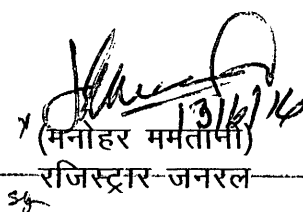 13/6/16
(मनोहर ममतानी)
रजिस्ट्रार जनरल